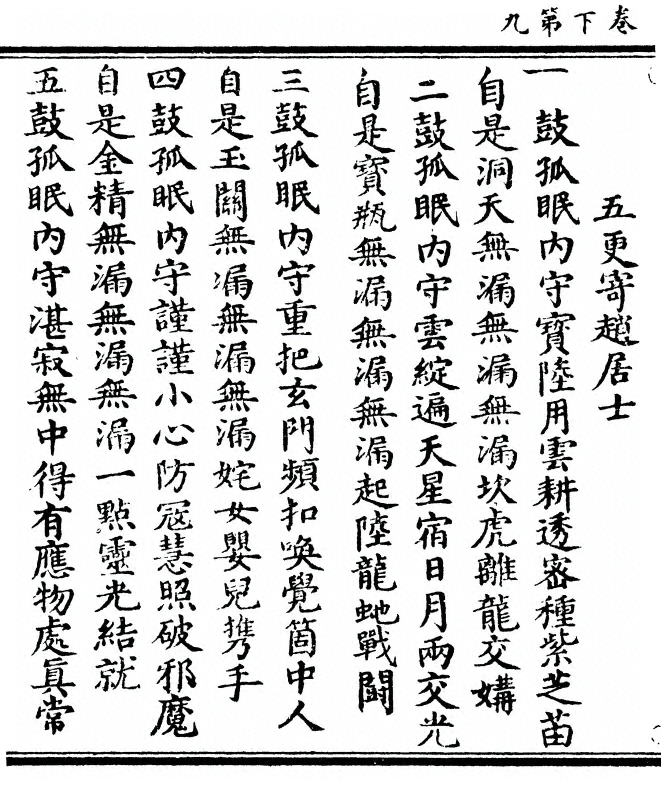 卷下第九
五更寄趙居士
一鼓孤眠內守寶陸用雲耕透密種紫芝苗
自是洞天無漏無漏無漏坎虎離龍交媾
二鼓孤眠內守雲綻遍天星宿日月兩交光
自是寶瓶無漏無漏無漏起陸龍虵戰鬪
三鼓孤眠內守重把玄門頻扣喚覺箇中人
自是玉關無漏無漏無漏姹女嬰兒攜手
四鼓孤眠內守謹謹小心防冦慧照破邪魔
自是金精無漏無漏無漏一點靈光結就
五鼓孤眠內守湛寂無中得有應物處真常